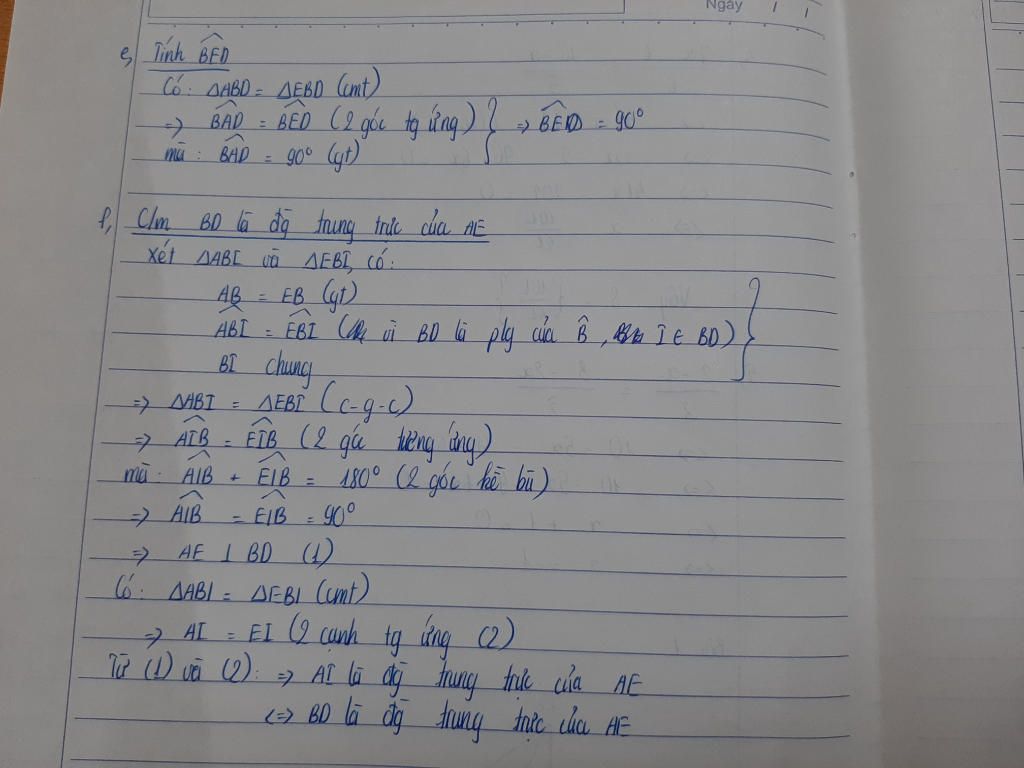 Ngày
e, Tính BED̂
Có: ΔABD = ΔEBD (cmt)
=> BAD̂ = BED̂ (2 góc tg ứng) } => BED̂ = 90°
mà: BAD̂ = 90° (gt)
f, C/m BD là đg̃ trung trực của AE
Xét ΔABI và ΔEBI, có:
AB = EB (gt)
ABÎ = EBÎ (vì BD là p/g của B̂, I ∈ BD) }
BI chung
=> ΔABI = ΔEBI (c-g-c)
=> AIB̂ = EIB̂ (2 góc tương ứng)
mà: AIB̂ + EIB̂ = 180° (2 góc kề bù)
=> AIB̂ = EIB̂ = 90°
=> AE ⊥ BD (1)
Có: ΔABI = ΔEBI (cmt)
=> AI = EI (2 cạnh tg ứng (2)
Từ (1) và (2): => AI là đg̃ trung trực của AE
<=> BD là đg̃ trung trực của AE